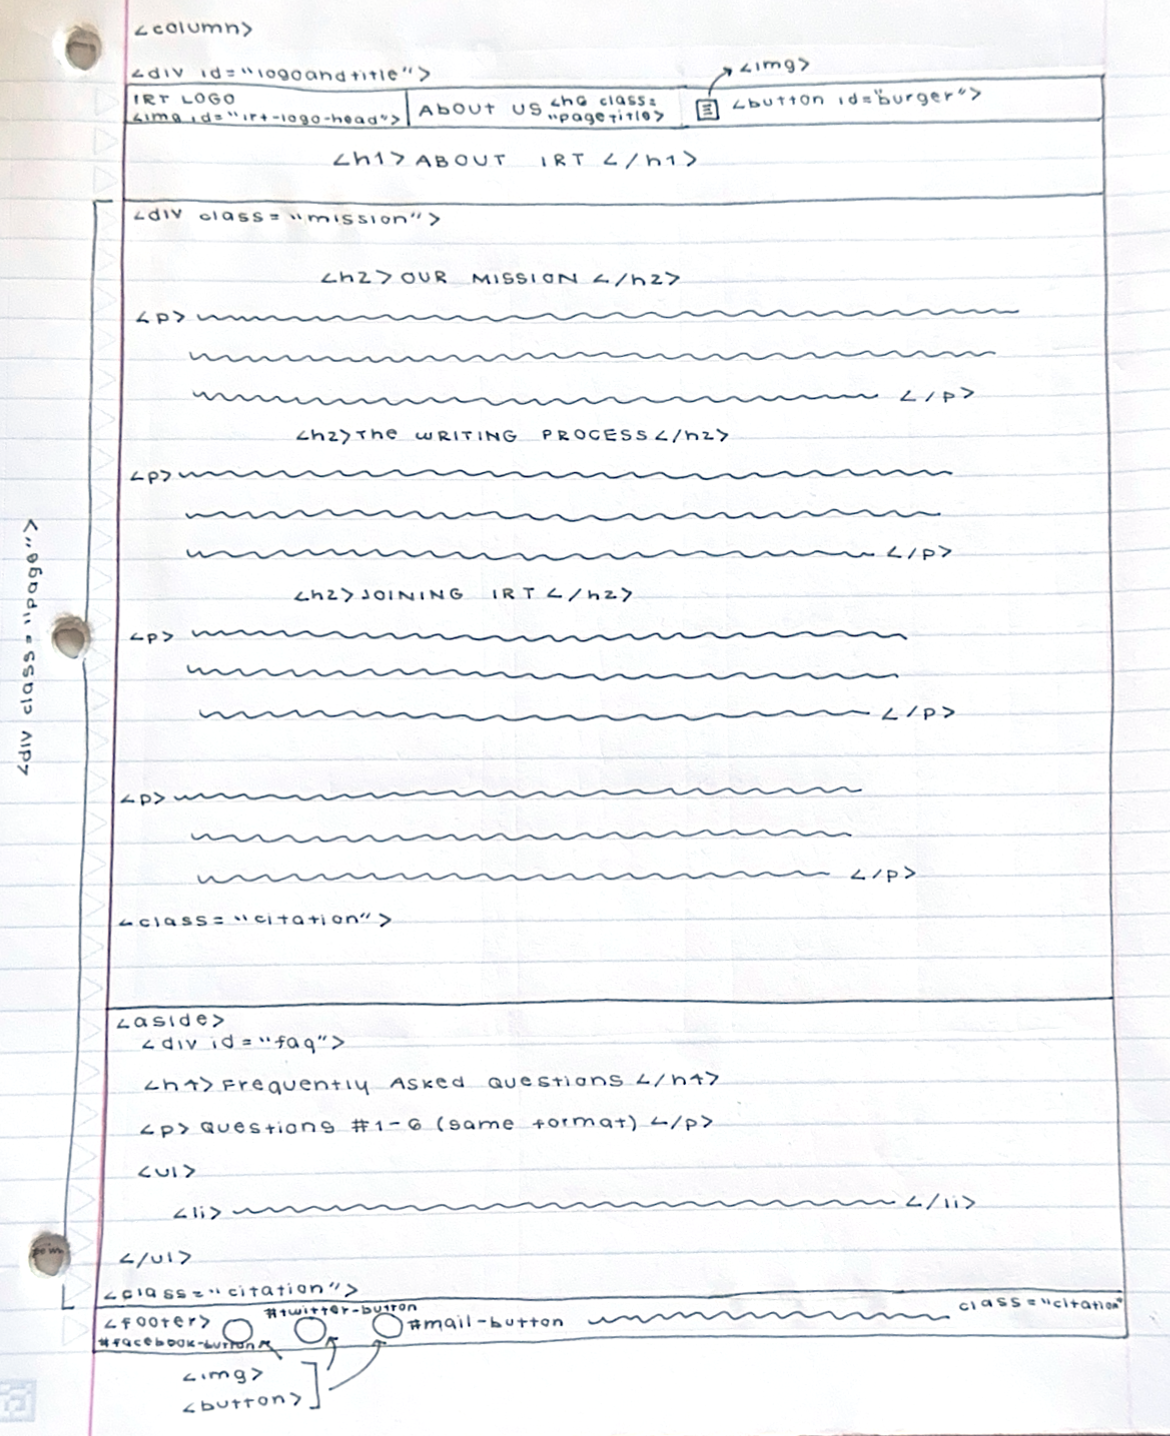 <column>
<div id="logoandtitle">
<img>
IRT LOGO
<img id="irt-logo-head">
ABOUT US <h6 class=
"pagetitle>
<button id="burger">
<h1> ABOUT IRT </h1>
<div class="mission">
<h2> OUR MISSION </h2>
<p>
</p>
<h2> The WRITING PROCESS </h2>
<p>
</p>
<h2> JOINING IRT </h2>
<p>
</p>
<p>
</p>
<class="citation">
<div class="page">
<aside>
<div id="faq">
<h4> Frequently Asked Questions </h4>
<p> Questions #1-6 (same format) </p>
<ul>
<li> </li>
</ul>
<class="citation">
<footer>
#twitter-button
#facebook-button
#mail-button
class="citation"
<img>
<button>